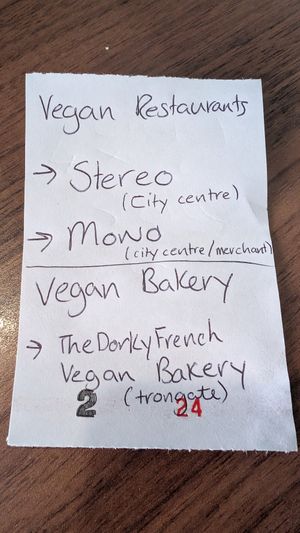 Vegan Restaurants
→ Stereo
(City centre)
→ Mono
(city centre/merchant)
Vegan Bakery
→ The Dorky French
Vegan Bakery
(trongate)
2 24